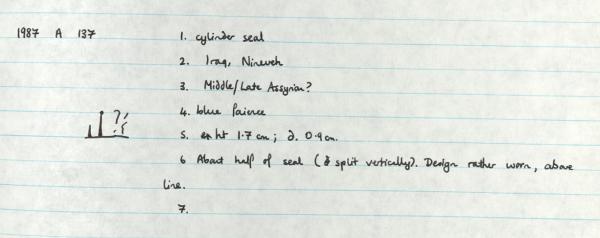 1987 A 137
1. cylinder seal
2. Iraq, Nineveh
3. Middle/Late Assyrian?
4. blue faience
5. ht 1.7 cm; d. 0.9 cm.
6 About half of seal (split vertically). Design rather worn, above
line.
7.